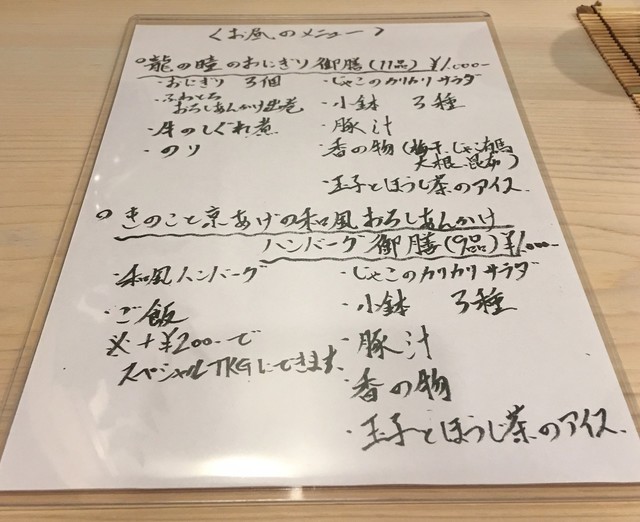 〈お昼のメニュー〉
○龍の瞳のおにぎり御膳(11品)¥1.000-
・おにぎり 3個
・ふわとろ
おろしあんかけ玉巻
・牛のしぐれ煮
・のり
・じゃこのカリカリサラダ
・小鉢 3種
・豚汁
・香の物(梅干、じゃこ有馬
大根、昆布)
・玉子とほうじ茶のアイス
○きのこと京あげの和風おろしあんかけ
ハンバーグ御膳(9品)¥1.000-
・和風ハンバーグ
・ご飯
※+¥200-で
スペシャルTKGにできます
・じゃこのカリカリサラダ
・小鉢 3種
・豚汁
・香の物
・玉子とほうじ茶のアイス